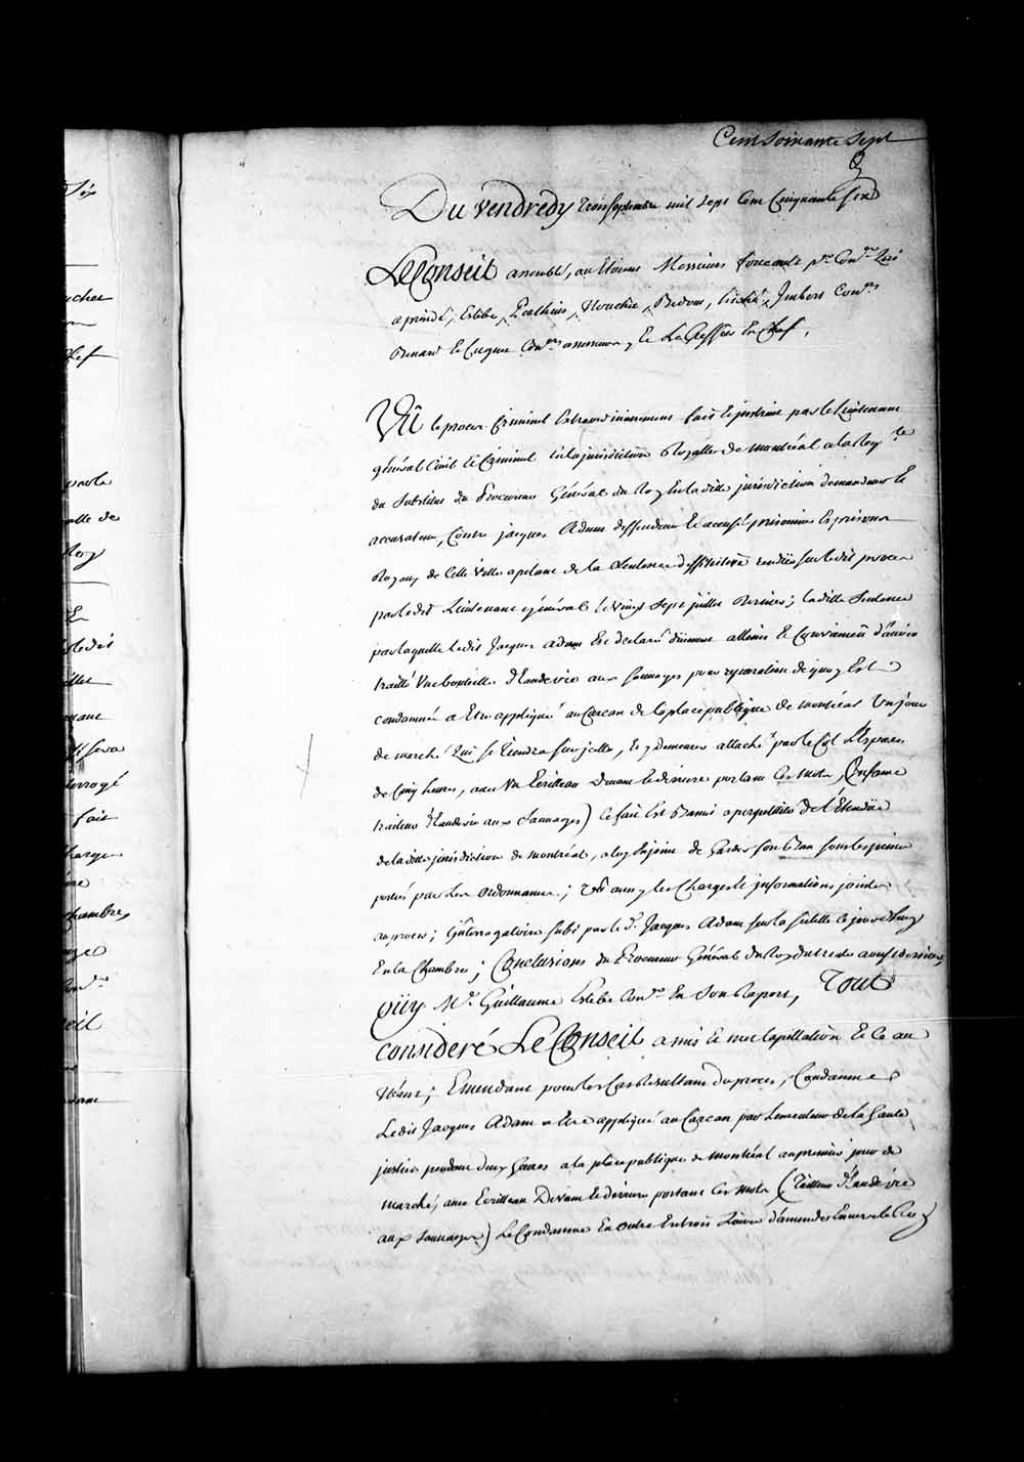 Cent Soixante Sept
Du vendredy trois septembre mil sept Cent Cinquante six
Le Conseil assemblé, ou Etoient Messieurs foucault pr. Conr. qui
a presidé, Estebe, Perthuis, Nouchet, Bedout, Imbert Conrs.
Benard et Cugnet Conrs. assesseurs, et Le Greffier En Chef,
Vû le procès Criminel Extraordinairement fait et instruit par le Lieutenant
général Civil et Criminel en la jurisdiction Royalle de montréal a la Reqte.
du Substitut du Procureur Général du Roy En la dite jurisdiction demandeur et
accusateur, Contre jacques Adam deffendeur et accusé prisonnier Es prisons
Royaux de Cette Ville apelant de la Sentence deffinitive rendüe sur le dit procès
par le dit Lieutenant général le vingt Sept juillet dernier; la ditte Sentence
par laquelle le dit Jacques Adam Est declaré düement atteint et Convaincû d'avoir
traitté Une bouteille d'Eau de vie aux Sauvages pour reparation de quoy Est
condamné a Etre appliqué au Carcan de la place publique de montréal Un jour
de marché qui se tiendra sur jcelle, et y demeurer attaché par le Col l'Espace
de Cinq heures, avec Un Ecriteau devant et derriere portant Ces mots, (Infame
traiteur d'Eau de vie aux Sauvages) Ce fait Est Banni a perpetuité de l'Etendüe
de la ditte jurisdiction de montréal, a luy Enjoint de Garder son Ban sous les peines
portés par les ordonnances; Vû aussy les Charges et jnformations jointes
au procès; jnterrogatoire subi par le d. Jacques Adam sur la sellette ce jourd'huy
En la Chambre; Conclusions du Procureur Général du Roy
Oüy Me. Guillaume Estebe Conr. En Son Raport, Tout
consideré Le Conseil a mis et met l'apellation et ce au
Néant; Emendant pour les Cas resultans du procès, Condamne
Le dit Jacques Adam a Etre appliqué au Carcan par l'executeur de la haute
justice pendant deux heures a la place publique de Montréal au premier jour de
marché, avec Ecriteau Devant et derriere portant Ces mots (Traiteur d'Eau de vie
aux Sauvages) Le Condamne En outre En trois Livres d'amende Envers le Roy